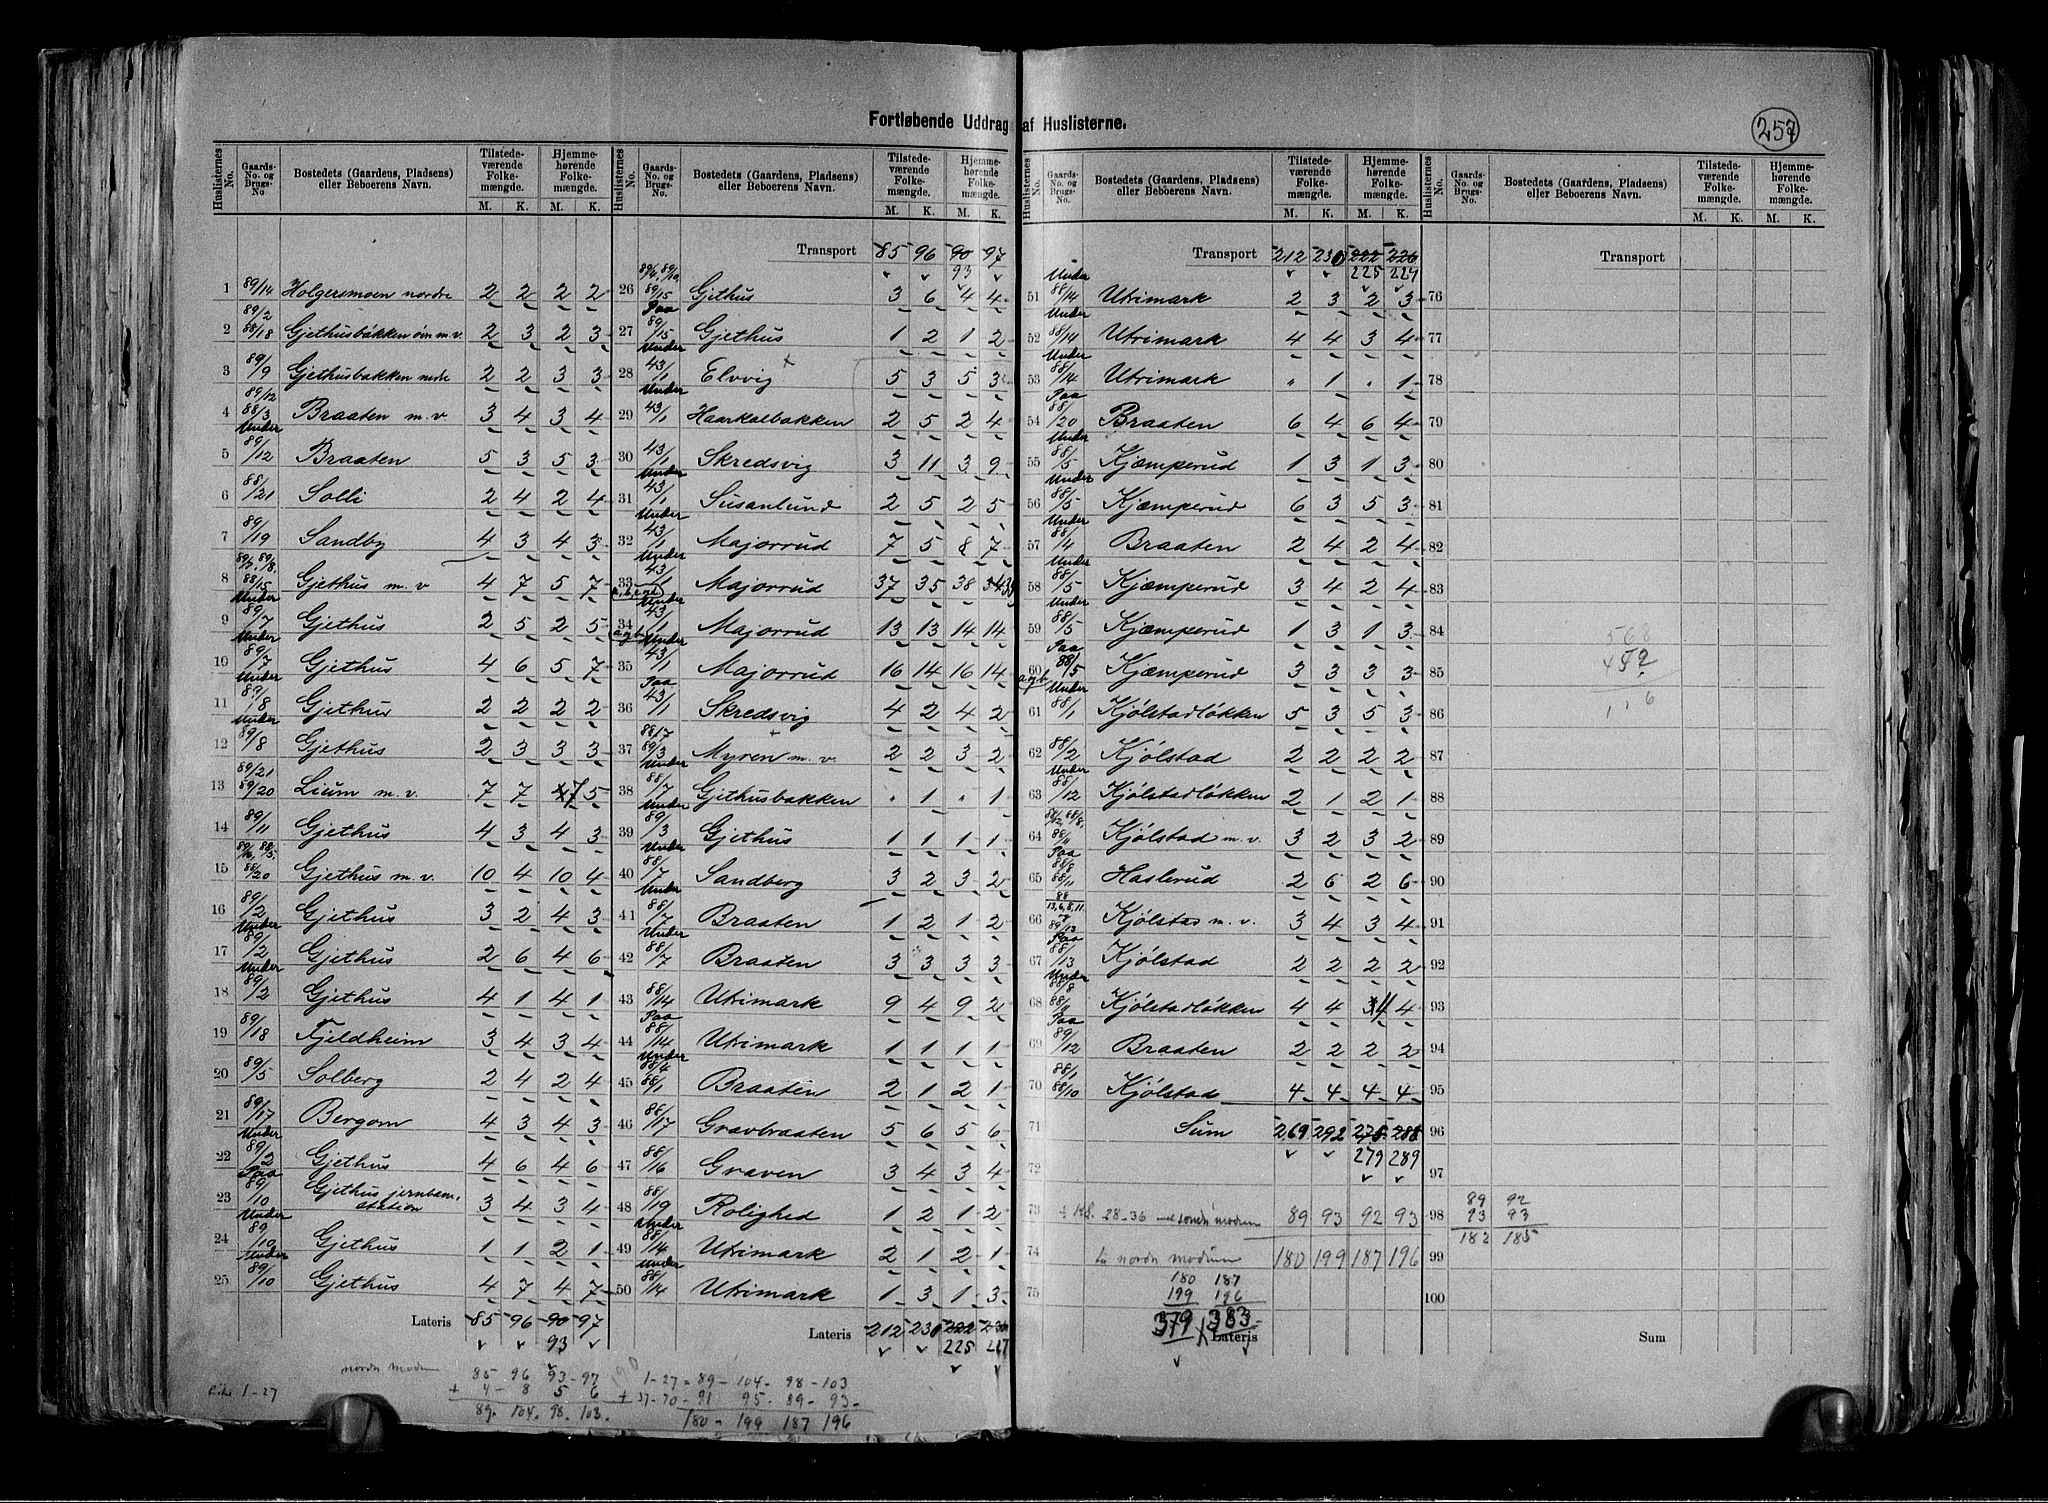 Fortløbende Uddrag af Huslisterne.
257
Huslisternes No. | Gaards-No. og Brugs-No | Bostedets (Gaardens, Pladsens) eller Beboerens Navn. | Tilstedeværende Folkemængde. M. K. | Hjemmehørende Folkemængde. M. K.
1 89/14 Holgersmoen nordre 2 2 2 2
2 89/2 88/18 Gjethusbakken øvre m.v. 2 3 2 3
3 89/9 Gjethusbakken nedre 2 2 3 3
4 89/12 88/3 Braaten m.v 3 4 3 4
5 Under 89/12 Braaten 5 3 5 3
6 88/21 Solli 2 4 2 4
7 89/19 Sandby 4 3 4 3
8 88/15 Gjethus m.v 4 7 5 7
9 Under 89/7 Gjethus 2 5 2 5
10 Under 89/7 Gjethus 4 6 5 7
11 Under 89/8 Gjethus 2 2 2 2
12 Under 89/8 Gjethus 2 3 3 3
13 89/21 89/20 Lium m.v. 7 7 7 5
14 89/11 Gjethus 4 3 4 3
15 89/16, 88/5, 88/20 Gjethus m.v. 10 4 10 4
16 89/2 Gjethus 3 2 4 3
17 Under 89/2 Gjethus 2 6 4 6
18 Under 89/2 Gjethus 4 1 4 1
19 89/18 Fjeldheim 3 4 3 4
20 89/5 Solberg 2 4 2 4
21 89/17 Bergom 4 3 4 3
22 Under 89/2 Gjethus 4 6 4 6
23 Paa 89/10 Gjethus jernbane station 3 4 3 4
24 Under 89/10 Gjethus 1 1 2 1
25 Under 89/10 Gjethus 4 7 4 7
Lateris 85 96 90 97
93
Transport 85 96 90 97
93
26 89/4, 89/10, 89/15 Gjethus 3 6 4 4
27 Paa 89/15 Gjethus 1 2 1 2
28 Under 43/1 Elvvig 5 3 5 3
29 Under 43/1 Haarkalbakken 2 5 2 4
30 43/1 Skredsvig 3 11 3 9
31 Under 43/1 Susanlund 2 5 2 5
32 Under 43/1 Majorrud 7 5 8 7
33 Under 43/1 Majorrud 37 35 38
34 a g b Under 43/1 Majorrud 13 13 14 14
35 Under 43/1 Majorrud 16 14 16 14
36 Paa 43/1 Skredsvig 4 2 4 2
37 88/7 89/3 Myren m.v. 2 2 3 2
38 Under 88/7 Gjethusbakken " 1 " 1
39 Under 89/3 Gjethus 1 1 1 1
40 Under 88/7 Sandberg 3 2 3 2
41 Under 88/7 Braaten 1 2 1 2
42 Under 88/7 Braaten 3 3 3 3
43 88/14 Utrimark 9 4 9 2
44 Paa 88/14 Utrimark 1 1 1 1
45 Under 88/4 88/1 Braaten 2 1 2 1
46 88/17 Gravbraaten 5 6 5 6
47 88/16 Graven 3 4 3 4
48 88/19 Rolighed 1 2 1 2
49 Under 88/14 Utrimark 2 1 2 1
50 Under 88/14 Utrimark 1 3 1 3
Lateris 212 230 222
225 227
Transport 212 230 222 226
225 227
51 Under 88/14 Utrimark 2 3 2 3
52 Under 88/14 Utrimark 4 4 3 4
53 Under 88/14 Utrimark " 1 " 1
54 Paa 88/20 Braaten 6 4 6 4
55 Under 88/5 Kjæmperud 1 3 1 3
56 Under 88/5 Kjæmperud 6 3 5 3
57 Under 88/14 Braaten 2 4 2 4
58 Under 88/5 Kjæmperud 3 4 2 4
59 Under 88/5 Kjæmperud 1 3 1 3
60 a g b Paa 88/5 Kjæmperud 3 3 3 3
61 Under 88/1 Kjølstadløkken 5 3 5 3
62 88/2 Kjølstad 2 2 2 2
63 Under 88/12 Kjølstadløkken 2 1 2 1
64 88/12, 88/8, 88/11 Kjølstad m.v. 3 2 3 2
65 Paa 88/8 88/11 Haslerud 2 6 2 6
66 88 13, 6, 8, 11. 89/13 Kjølstad m.v. 3 4 3 4
67 Paa 88/13 Kjølstad 2 2 2 2
68 Under 88/8 88/11 Kjølstadløkken 4 4 4 4
69 Paa 89/12 Braaten 2 2 2 2
70 88/1 88/10 Kjølstad 4 4 4 4
71 Sum 269 292 275 288
72 279 289
73 ÷ Hl. 28-36 ved søndr modum 89 93 92 93
74 to nordr modum 180 199 187 196
75 180 187
199 196
379 383
Lateris
Transport
76
77
78
79
80
81
82
83
84
85
86
87
88
89
90
91
92
93
94
95
96
97
98
99
100
568
6
89 92
93 93
182 185
Sum
nordr modum 85 96 93 97
1-27 + 4 8 5 6
89. 104. 98. 103.
1-27 = 89 - 104 - 98 - 103
+ 37-70 - 91 95 89 - 93
180 - 199 187 196